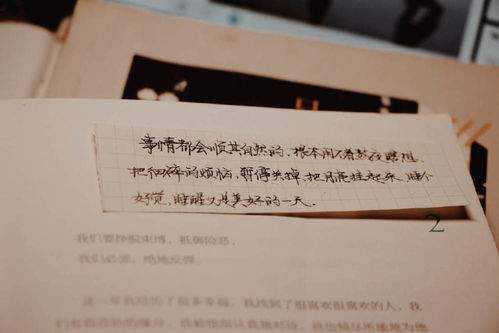 事情都会顺其自然的、根本用不着熬夜瞎想
把细碎的烦恼,暂停关掉,把月亮挂起来,睡个
好觉,睡醒又是美好的一天.
2
我们要挣脱束缚,抵御险恶,
我们必须,绝地反弹。
这一年我经历了很多幸福,我找到了很喜欢很喜欢的人,我